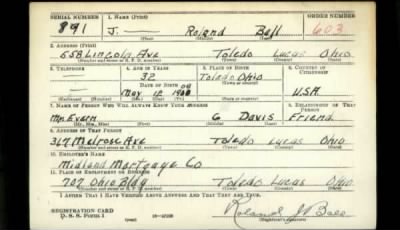 SERIAL NUMBER 1. NAME (Print) ORDER NUMBER
891 J. — Roland Ball 603
(First) (Middle) (Last)
2. ADDRESS (Print)
558 Lincoln Ave Toledo Lucas Ohio
(Number and street or R. F. D. number) (Town) (County) (State)
3. TELEPHONE 4. AGE IN YEARS 5. PLACE OF BIRTH 6. COUNTRY OF CITIZENSHIP
— 32 Toledo Ohio
DATE OF BIRTH
— May 12 08 U.S.A
(Mo.) (Day) (Yr.)
7. NAME OF PERSON WHO WILL ALWAYS KNOW YOUR ADDRESS 8. RELATIONSHIP OF THAT PERSON
Mr. G Davis Friend
(Mr., Mrs., Miss) (First) (Middle) (Last)
9. ADDRESS OF THAT PERSON
367 Melrose Ave Toledo Lucas Ohio
(Number and street or R. F. D. number) (Town) (County) (State)
10. EMPLOYER'S NAME
Midland Mortgage Co
11. PLACE OF EMPLOYMENT OR BUSINESS
707 Ohio Bldg Toledo Lucas Ohio
(Number and street or R. F. D. number) (Town) (County) (State)
I AFFIRM THAT I HAVE VERIFIED ABOVE ANSWERS AND THAT THEY ARE TRUE.
REGISTRATION CARD
D. S. S. FORM 1 (over) Roland J Ball
(Registrant's signature)